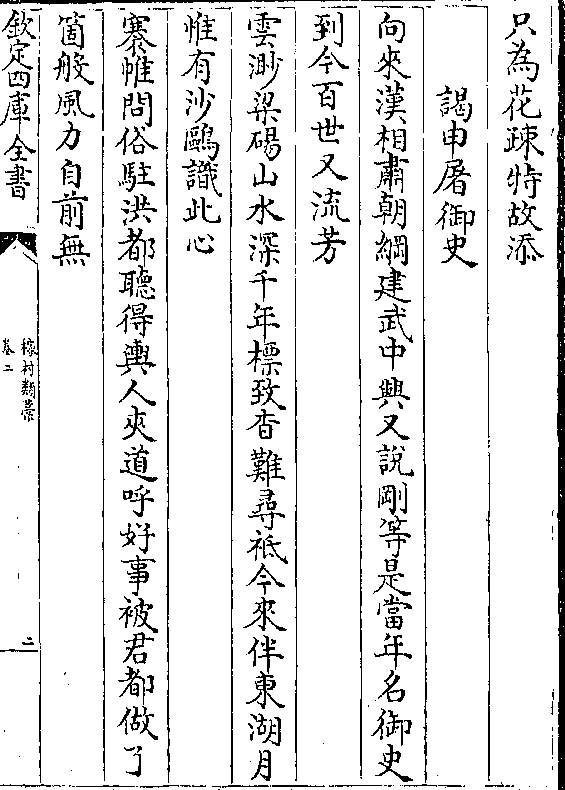 只為花疎特故添
謁申屠御史
向來漢相肅朝綱建武中興又說剛等是當年名御史
到今百世又流芳
雲渺梁碭山水深千年標致杳難尋祗今來伴東湖月
惟有沙鷗識此心
褰帷問俗駐洪都聽得輿人夾道呼好事被君都做了
箇般風力自前無
欽定四庫全書
樵村類藁
卷二
二